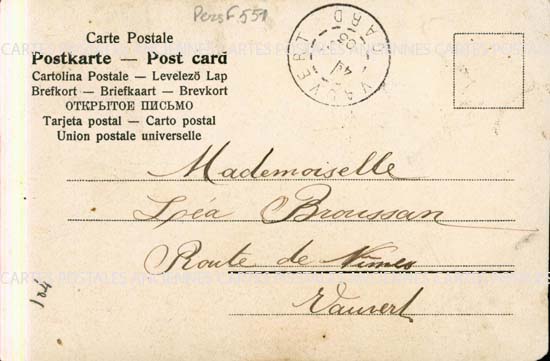 Pers F 551
Carte Postale
Postkarte — Post card
Cartolina Postale — Levelező Lap
Brefkort — Briefkaart — Brevkort
ОТКРЫТОЕ ПИСЬМО
Tarjeta postal — Carto postal
Union postale universelle
VAUVERT
GARD
CARTES POSTALES ANCIENNES CARTES POSTALES ANCIENNES
Mademoiselle
Léa Broussan
Route de Nîmes
Vauvert
CARTES POSTALES ANCIENNES CARTES POSTALES ANCIENNES